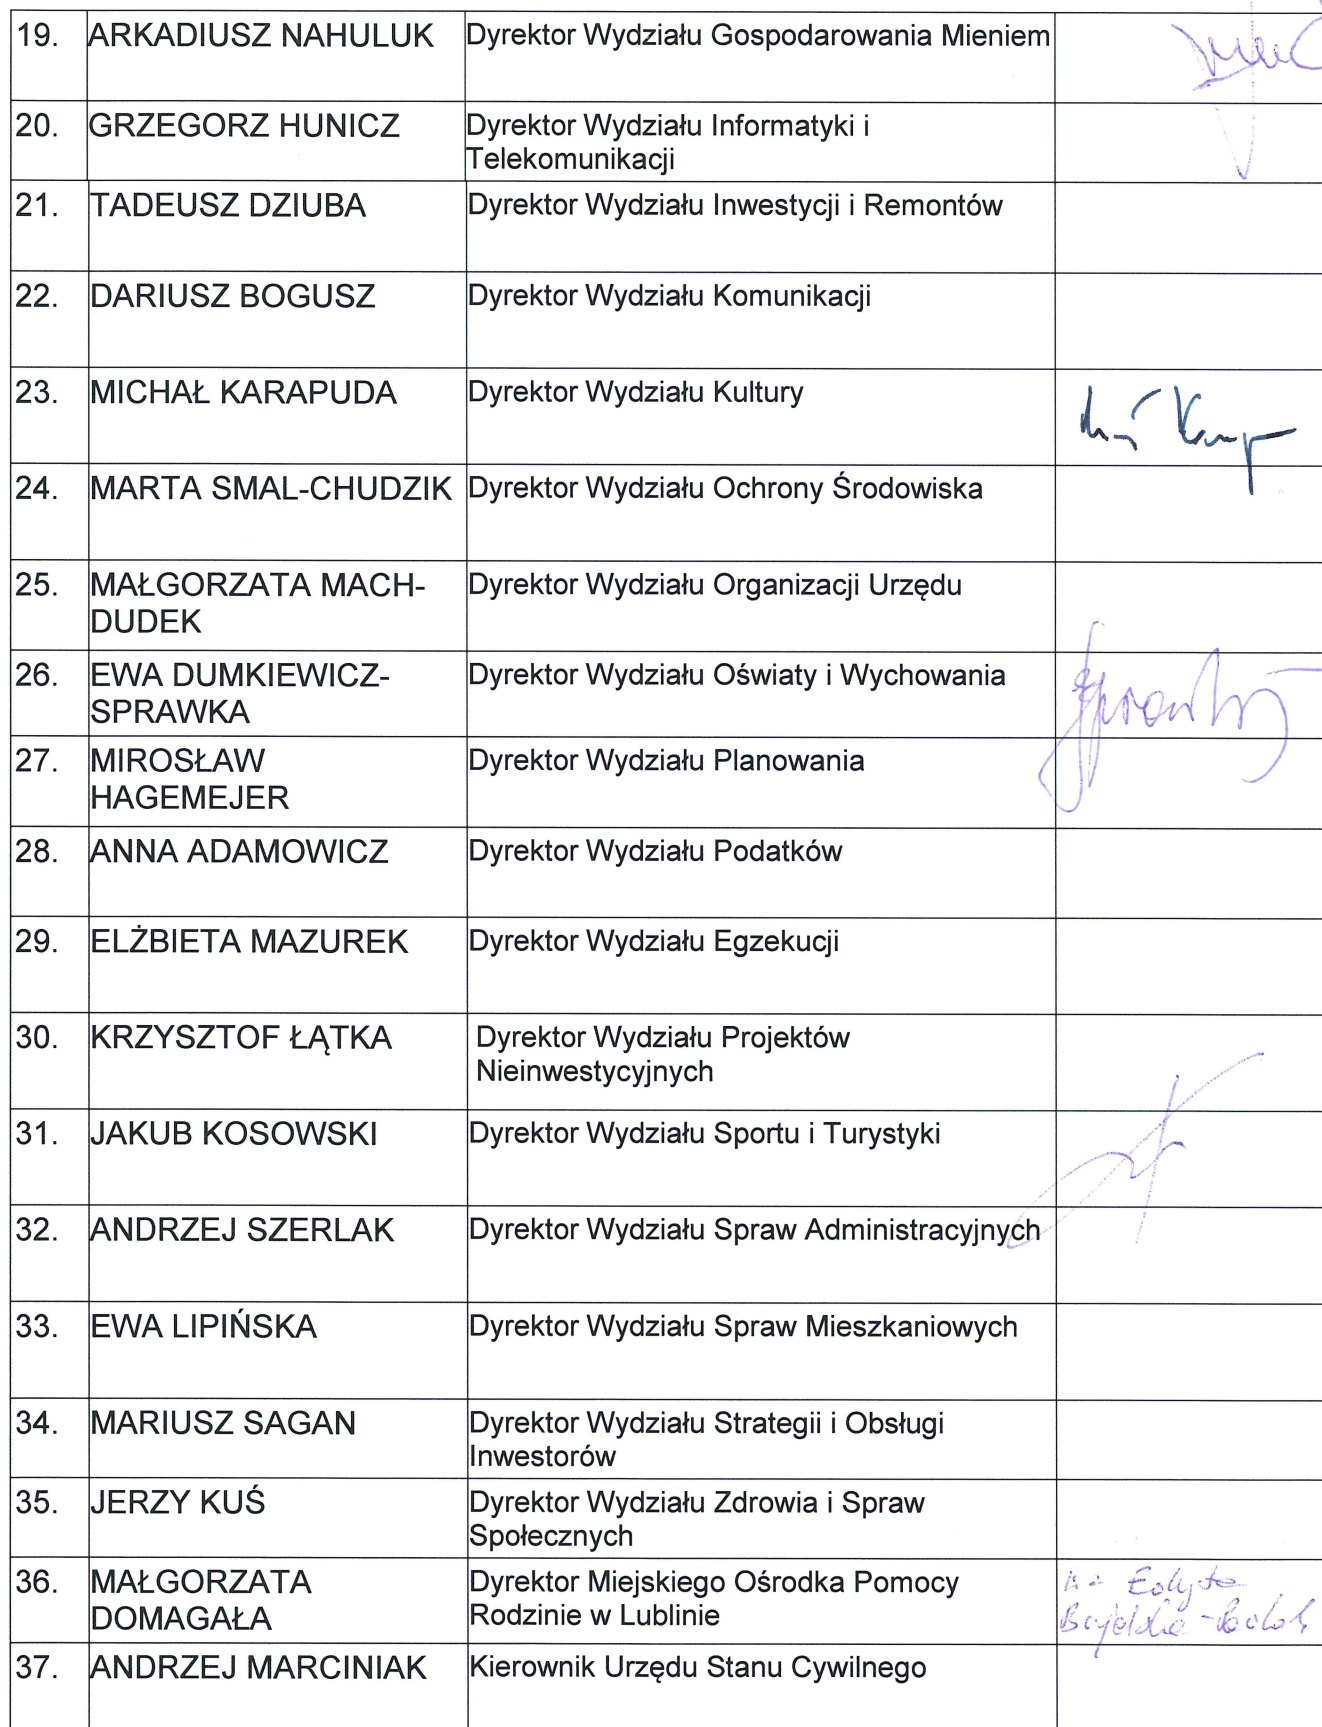 19. ARKADIUSZ NAHULUK Dyrektor Wydziału Gospodarowania Mieniem
20. GRZEGORZ HUNICZ Dyrektor Wydziału Informatyki i
Telekomunikacji
21. TADEUSZ DZIUBA Dyrektor Wydziału Inwestycji i Remontów
22. DARIUSZ BOGUSZ Dyrektor Wydziału Komunikacji
23. MICHAŁ KARAPUDA Dyrektor Wydziału Kultury
24. MARTA SMAL-CHUDZIK Dyrektor Wydziału Ochrony Środowiska
25. MAŁGORZATA MACH- Dyrektor Wydziału Organizacji Urzędu
DUDEK
26. EWA DUMKIEWICZ- Dyrektor Wydziału Oświaty i Wychowania
SPRAWKA
27. MIROSŁAW Dyrektor Wydziału Planowania
HAGEMEJER
28. ANNA ADAMOWICZ Dyrektor Wydziału Podatków
29. ELŻBIETA MAZUREK Dyrektor Wydziału Egzekucji
30. KRZYSZTOF ŁĄTKA Dyrektor Wydziału Projektów
Nieinwestycyjnych
31. JAKUB KOSOWSKI Dyrektor Wydziału Sportu i Turystyki
32. ANDRZEJ SZERLAK Dyrektor Wydziału Spraw Administracyjnych
33. EWA LIPIŃSKA Dyrektor Wydziału Spraw Mieszkaniowych
34. MARIUSZ SAGAN Dyrektor Wydziału Strategii i Obsługi
Inwestorów
35. JERZY KUŚ Dyrektor Wydziału Zdrowia i Spraw
Społecznych
36. MAŁGORZATA Dyrektor Miejskiego Ośrodka Pomocy
DOMAGAŁA Rodzinie w Lublinie
37. ANDRZEJ MARCINIAK Kierownik Urzędu Stanu Cywilnego